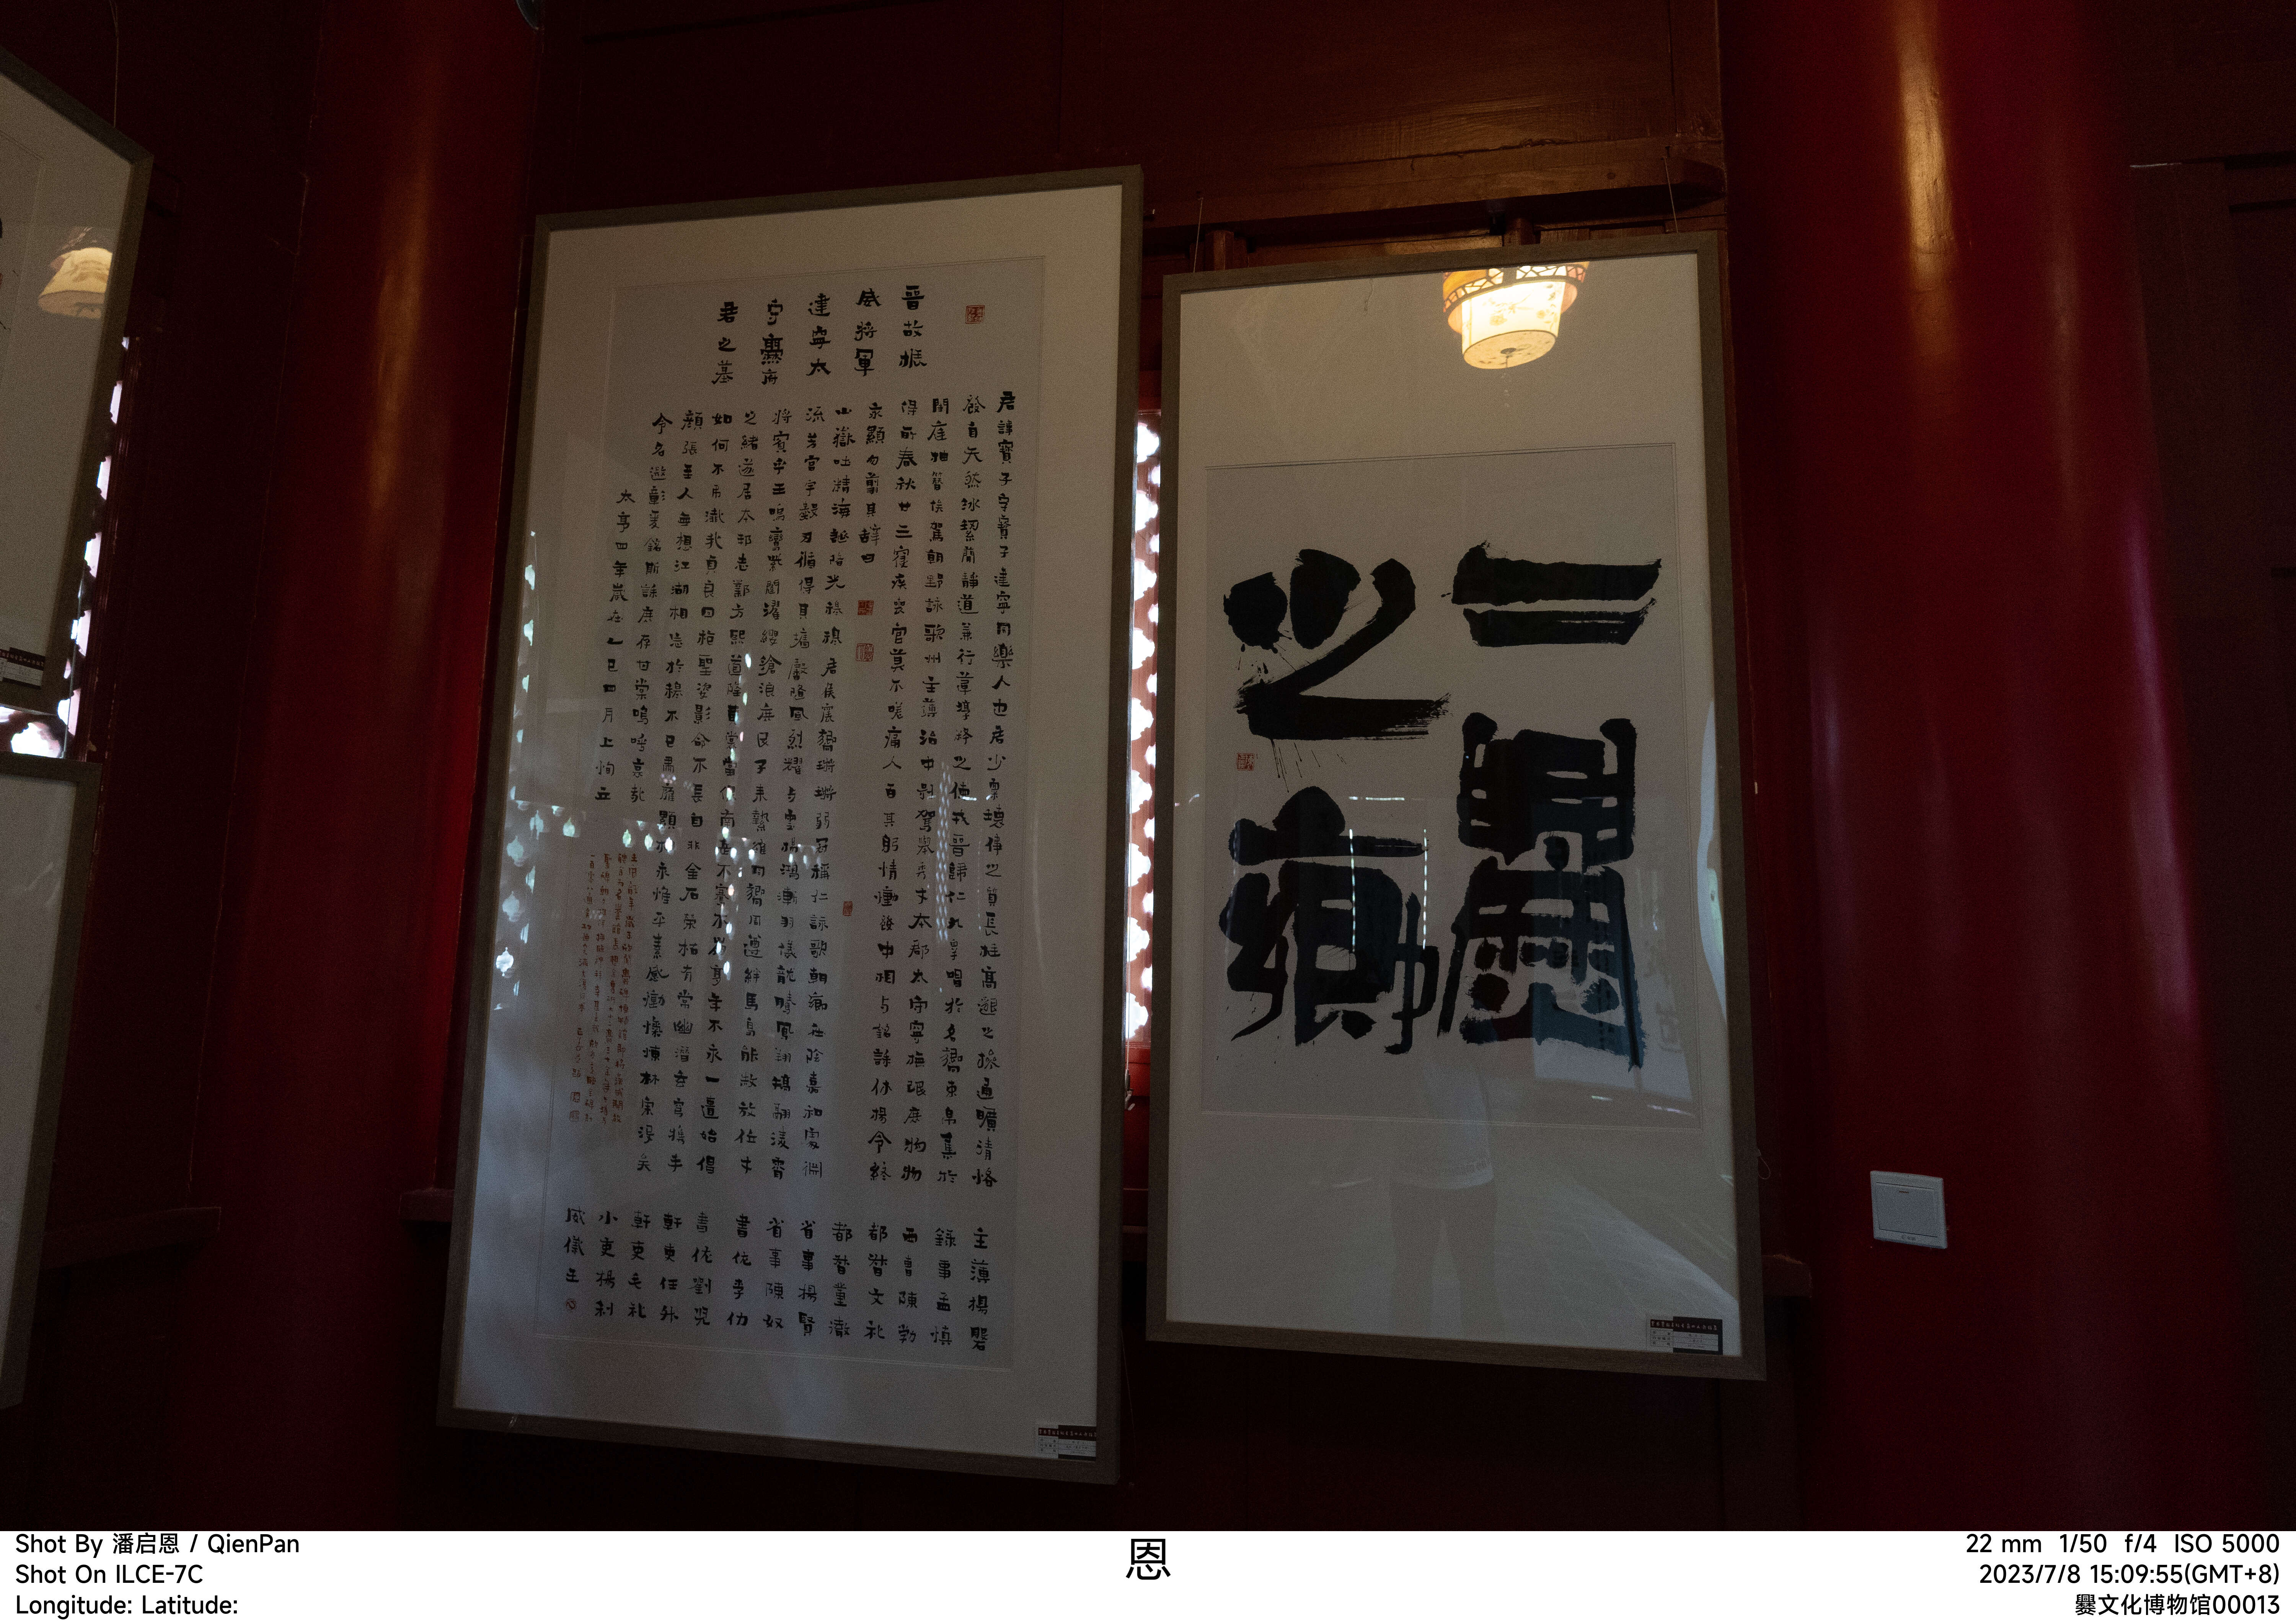 晋故振
威將軍
建寧太
守爨府
君之墓
君諱寶子字寶子建寧同樂人也君少稟瓌偉之質長挺高邈之操通曠清恪
發自天然冰絜簡静道兼行葦淳粹之德戎晋歸仁九皋唱於名嚮束帛集於
閨庭抽簪俟駕朝野詠歌州主薄治中别駕舉秀才本郡太守寧撫氓庶物物
得所春秋廿三寢疾喪官莫不嗟痛人百其躬情慟發中相与銘誄休揚令終
永顯勿翦其辞曰
山嶽吐精海誕陪光穆穆君侯震嚮鏘鏘弱冠稱仁詠歌朝鄉在陰嘉和處淵
流芳宫宇數刃循得其墻馨隆風烈耀与雲揚鴻漸羽儀龍騰鳳翔矯翮凌霄
將賓乎王鳴鸞紫闥濯纓滄浪庶民子來縶維同嚮周遵絆馬曷能赦放位才
之緒遂居本邦志鄴方熙道隆黄裳當保南岳不騫不崩享年不永一匱始倡
如何不弔殲我貞良回抱聖姿影命不長自非金石榮枯有常幽潛玄穹携手
顔張至人無想江湖相忘於穆不已肅雍顯相永惟平素感慟慷愾林宗没矣
令名遐彰爰銘斯誄庶存甘棠嗚呼哀哉
太亨四年歲在乙巳四月上恂立
主薄楊磐
錄事孟慎
西曹陳勃
都督文礼
都督董徹
省事楊賢
省事陳奴
書佐李仂
書佐劉兒
幹吏任升
幹吏毛礼
小吏楊利
威儀王
二爨
之鄉
Shot By 潘启恩 / QienPan
Shot On ILCE-7C
Longitude: Latitude:
恩
22 mm 1/50 f/4 ISO 5000
2023/7/8 15:09:55(GMT+8)
爨文化博物馆00013